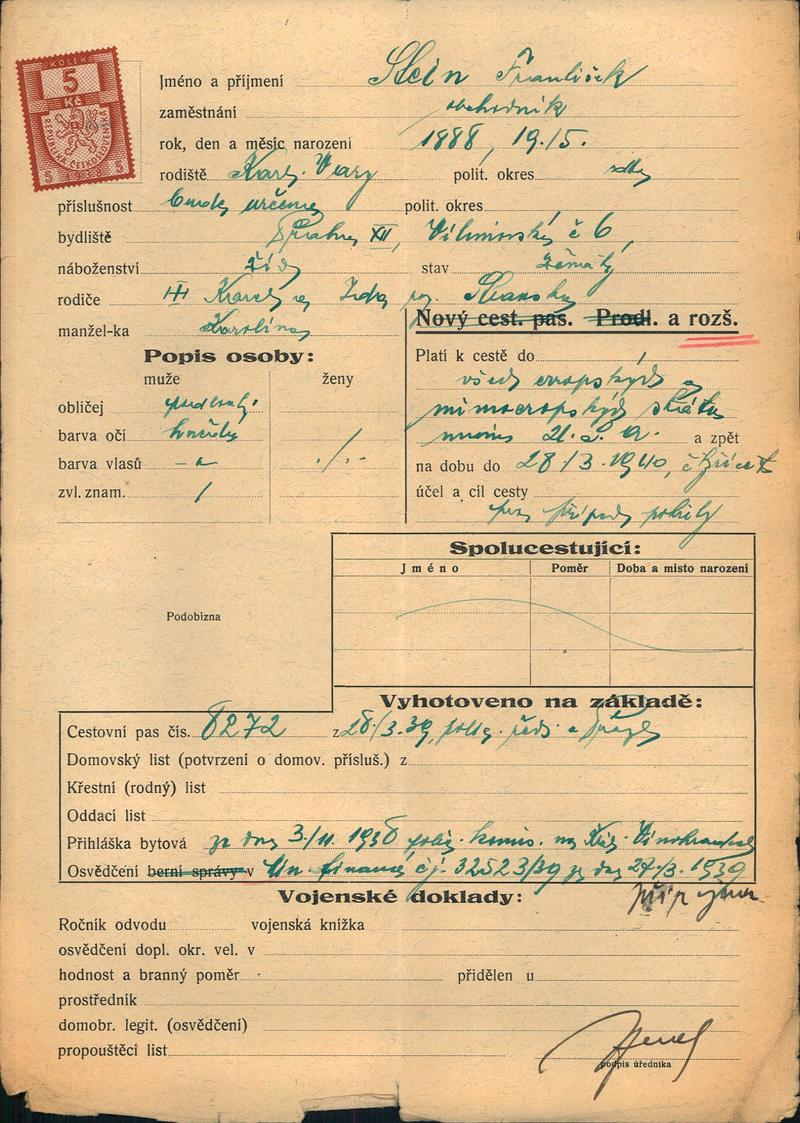 KOLEK
5
Kč
REPUBLIKA ČESKOSLOVENSKÁ
5 1938 5
Jméno a příjmení Stein František
zaměstnání obchodník
rok, den a měsíc narození 1888, 19./5.
rodiště Karl. Vary polit. okres
příslušnost bude určena polit. okres
bydliště Praha XII, č 6,
náboženství stav ženatý
rodiče Karel a
manžel-ka Karolina
Nový cest. pas. Prodl. a rozš.
Popis osoby:
muže ženy
obličej podlouhlý
barva očí hnědé
barva vlasů
zvl. znam. /
Platí k cestě do
všech evropských a
mimoevropských států
mimo a zpět
na dobu do 28/3. 1940,
účel a cíl cesty
pro případ potřeby
Spolucestující:
Jméno Poměr Doba a místo narození
Podobizna
Vyhotoveno na základě:
Cestovní pas čís. 8272 z 28/3.39, ředit. Praze
Domovský list (potvrzení o domov. přísluš.) z
Křestní (rodný) list
Oddací list
Přihláška bytová ze dne 3./11. 1938 polic. komis. na Král. Vinohradech
Osvědčení berní správy v finanční čj. 32523/39 ze dne 27./3. 1939
Vojenské doklady:
Ročník odvodu vojenská knížka
osvědčení dopl. okr. vel. v
hodnost a branný poměr přidělen u
prostředník
domobr. legit. (osvědčení)
propouštěcí list
podpis úředníka